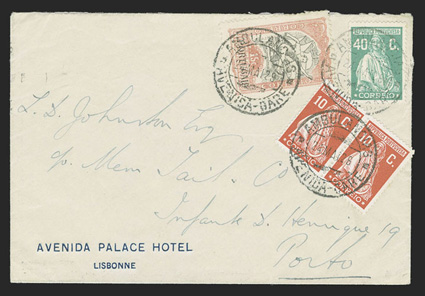 40 C.
CORREIO
10 C.
CORREIO
AMBULANCIA
AVENIDA-GARE
L. D. Johnston Esq
c/o Mem Tait. Co
Infante D. Henrique 19
Porto
AVENIDA PALACE HOTEL
LISBONNE